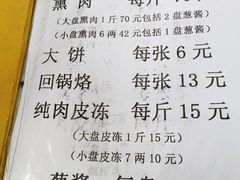 熏肉 每斤 70
(大盘熏肉1斤70元包括2盘葱酱)
(小盘熏肉6两42元包括1盘葱酱)
大饼 每张6元
回锅烙 每张13元
纯肉皮冻 每斤15元
(大盘皮冻1斤15元)
(小盘皮冻7两10元)
葱酱 每盘